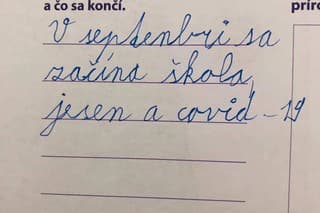 a čo sa končí.
príro
V septenbri sa
začína škola,
jesen a covid - 19